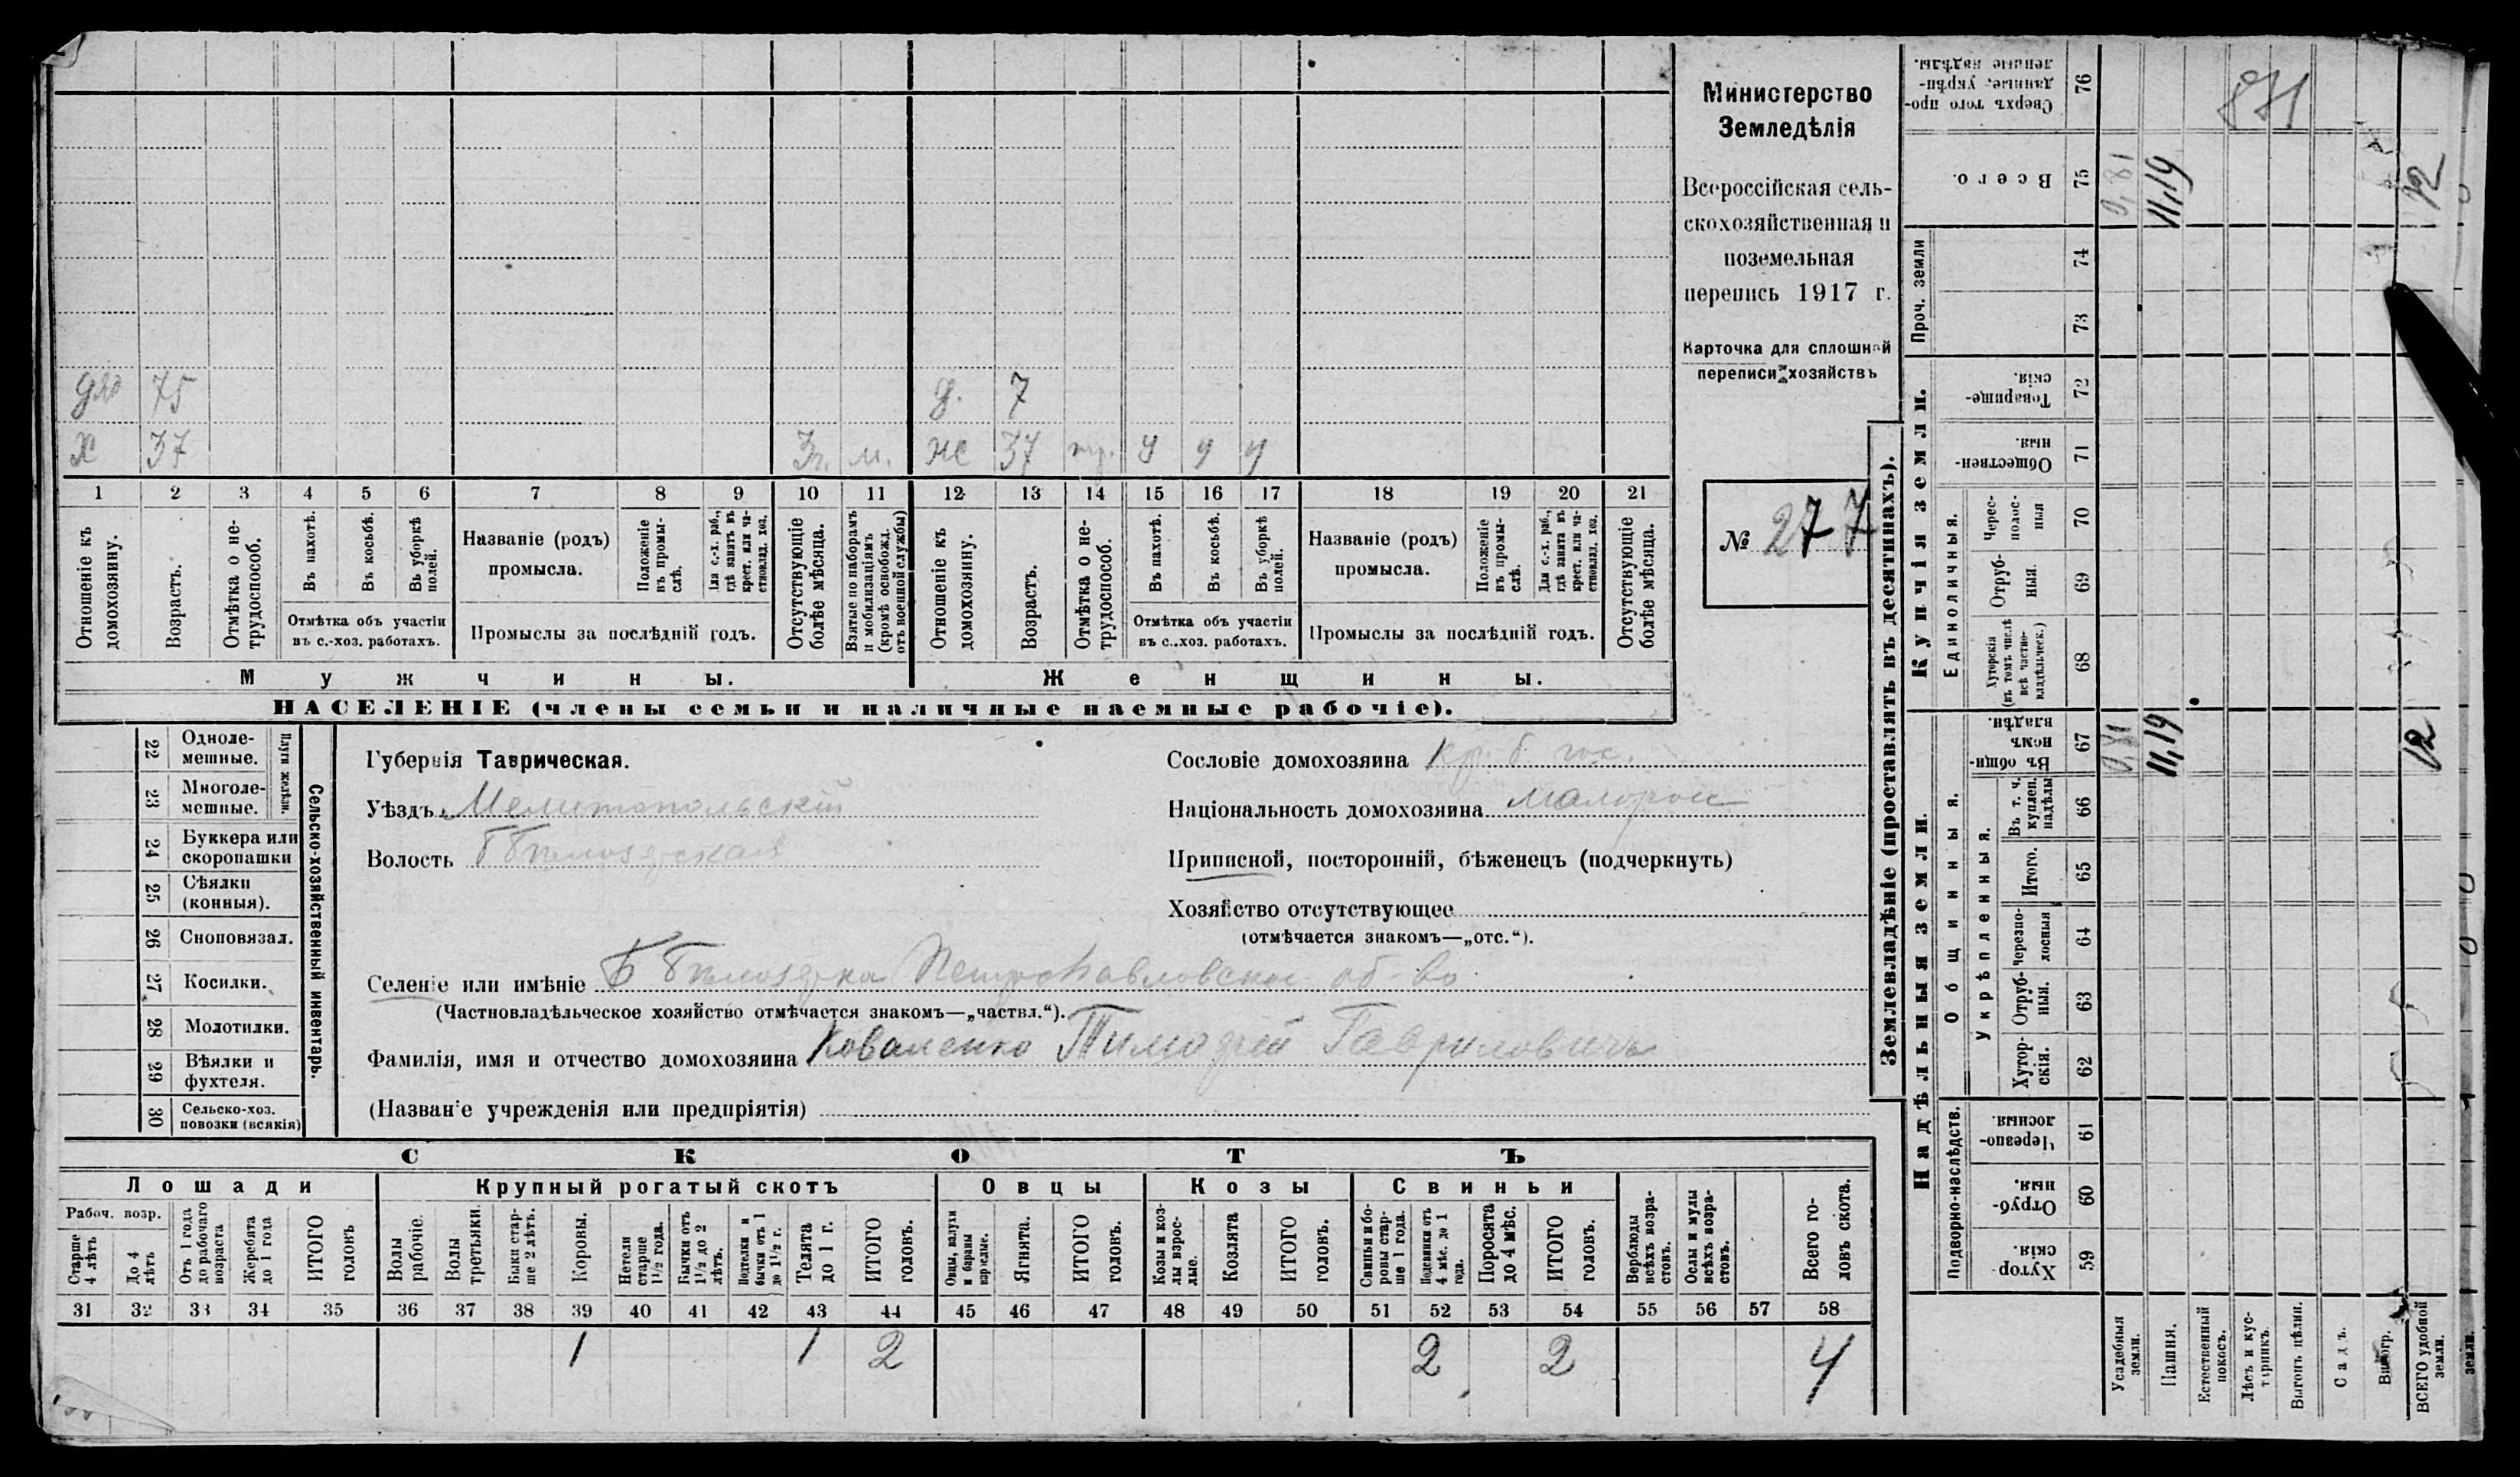 Министерство
Земледѣлія
Всероссійская сель-
скохозяйственная и
поземельная
перепись 1917 г.
Карточка для сплошной
переписи хозяйствъ
№ 277
75 д. 7
Х 37 3г. м. ж 37 у у у
1 2 3 4 5 6 7 8 9 10 11 12 13 14 15 16 17 18 19 20 21
Отношеніе къ домохозяину.
Возрастъ.
Отмѣтка о не-трудоспособ.
Въ пахотѣ.
Въ косьбѣ.
Въ уборкѣ полей.
Отмѣтка объ участіи
въ с.-хоз. работахъ.
Названіе (родъ)
промысла.
Положеніе въ промы-слѣ.
Для с.-х. раб., гдѣ занятъ въ крест. или ча-стновлад. хоз.
Промыслы за послѣдній годъ.
Отсутствующіе болѣе мѣсяца.
Взятые по наборамъ и мобилизаціямъ (кромѣ освобожд. отъ военной службы)
Отношеніе къ домохозяину.
Возрастъ.
Отмѣтка о не-трудоспособ.
Въ пахотѣ.
Въ косьбѣ.
Въ уборкѣ полей.
Отмѣтка объ участіи
въ с..хоз. работахъ.
Названіе (родъ)
промысла.
Положеніе въ промы-слѣ.
Для с.-х. раб., гдѣ занята въ крест. или ча-стновлад. хоз.
Промыслы за послѣдній годъ.
Отсутствующіе болѣе мѣсяца.
Мужчины. Женщины.
НАСЕЛЕНІЕ (члены семьи и наличные наемные рабочіе).
22 Одноле-мешные.
23 Многоле-мешные.
Плуги желѣзн.
24 Буккера или скоропашки
25 Сѣялки (конныя).
26 Сноповязал.
27 Косилки.
28 Молотилки.
29 Вѣялки и фухтеля.
30 Сельско-хоз. повозки (всякія)
Сельско-хозяйственный инвентарь.
Губернія Таврическая.
Уѣздъ Мелитопольскій
Волость Бѣлозерская
Сословіе домохозяина кр. б. гос.
Національность домохозяина малорос
Приписной, посторонній, бѣженецъ (подчеркнуть)
Хозяйство отсутствующее
(отмѣчается знакомъ—„отс.“).
Селеніе или имѣніе Б Бѣлозерка Петропавловское об-во
(Частновладѣльческое хозяйство отмѣчается знакомъ—„частвл.“).
Фамилія, имя и отчество домохозяина Коваленко Тимофей Гавриловичъ
(Названіе учрежденія или предпріятія)
СКОТЪ
Лошади Крупный рогатый скотъ Овцы Козы Свиньи
Рабоч. возр.
Старше 4 лѣтъ
До 4 лѣтъ
Отъ 1 года до рабочаго возраста
Жеребята до 1 года
ИТОГО головъ
Волы рабочіе.
Волы третьяки.
Быки стар-ше 2 лѣтъ.
Коровы.
Нетели старше 1½ года.
Бычки отъ 1½ до 2 лѣтъ.
Подтелки и бычки отъ 1 до 1½ г.
Телята до 1 г.
ИТОГО головъ.
Овцы, валухи и бараны взрослые.
Ягнята.
ИТОГО головъ.
Козы и коз-лы взрос-лые.
Козлята
ИТОГО головъ.
Свиньи и бо-ровы стар-ше 1 года.
Подсвинки отъ 4 мѣс. до 1 года.
Поросята до 4 мѣс.
ИТОГО головъ.
Верблюды всѣхъ возра-стовъ.
Ослы и мулы всѣхъ возра-стовъ.
Всего го-ловъ скота.
31 32 33 34 35 36 37 38 39 40 41 42 43 44 45 46 47 48 49 50 51 52 53 54 55 56 57 58
1 1 2 2 2 4
Землевладѣніе (проставлять въ десятинахъ).
Надѣльныя земли. Купчія земли. Проч. земли
Подворно-наслѣдств. Общинныя. Укрѣпленныя. Единоличныя.
Хутор-скія. 59
Отруб-ныя. 60
Черезпо-лосныя. 61
Хутор-скія. 62
Отруб-ныя. 63
черезпо-лосныя 64
Итого. 65
Въ т. ч. куплен. надѣлы 66
Въ общи-номъ владѣн. 67
Хуторскія (въ томъ числѣ всѣ частно-владѣльческ.) 68
Отруб-ныя. 69
Черес-полос-ныя 70
Обществен-ныя. 71
Товарище-скія. 72
73
74
Всего. 75
Сверхъ того про-данные, укрѣп-ленные надѣлы. 76
Усадебныя земли. 0,81 0,81
Пашня. 11,19 11,19
Естественный покосъ.
Лѣсъ и кус-тарникъ.
Выгонъ цѣлин.
Садъ.
Виногр.
ВСЕГО удобной земли. 12 12
земли.